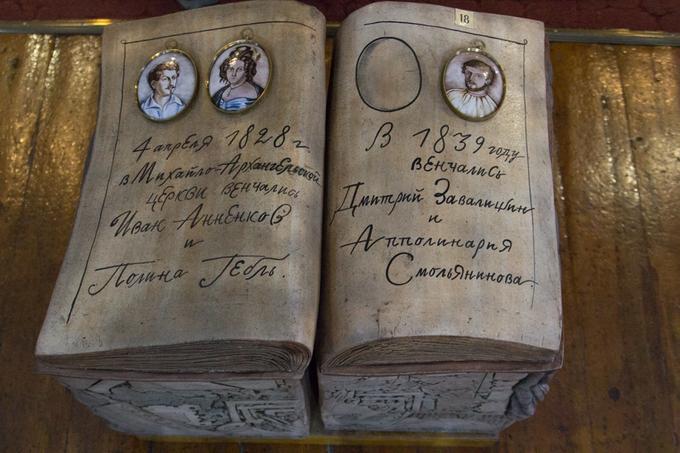 4 апреля 1828 г.
в Михайло-Архангельской
церкви венчались
Иван Анненков
и
Полина Гебль.
18
В 1839 году
венчались
Дмитрий Завалишин
и
Апполинария
Смольянинова.